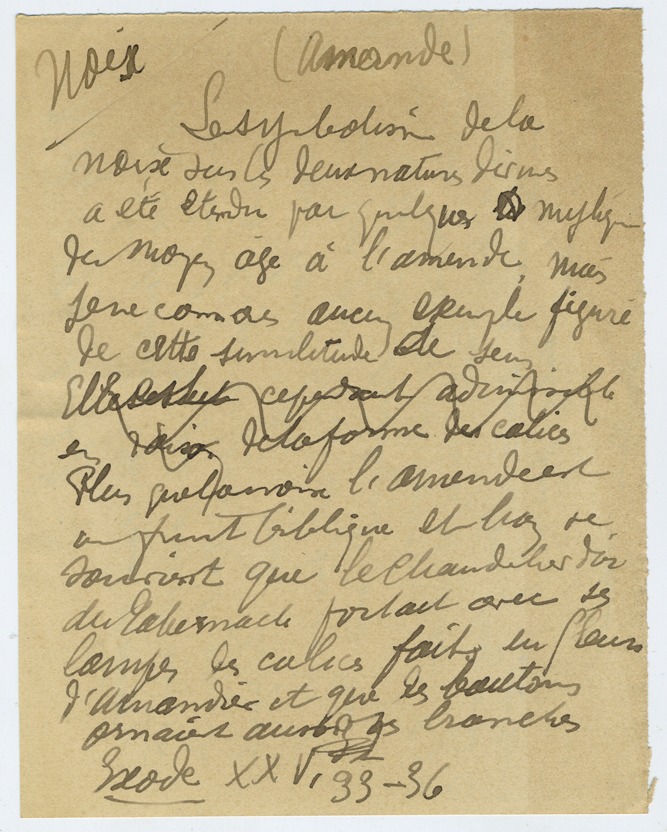 Noix (Amende)
Le symbolisme de la
noix sur les deux natures divines
a été étendu par quelques mystiques
du Moyen âge à l'amende, mais
je ne connais aucun exemple figuré
de cette similitude de sens
Elle cependant admissible
en raison de la forme des calices
Plus que la noix l'amende est
un fruit biblique et l'on se
souvient que le Chandelier d'or
du Tabernacle portait avec ses
lampes des calices faits en fleurs
d'Amandier et que des boutons
ornaient aussi ses branches
Exode XXV, 33-36